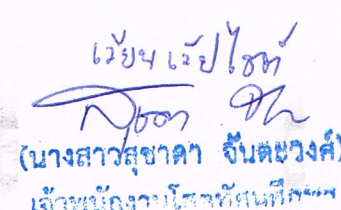 เวียนเว็ปไซต์
(นางสาวสุชาดา จันตะวงศ์)
เจ้าพนักงานโสตทัศนศึกษา